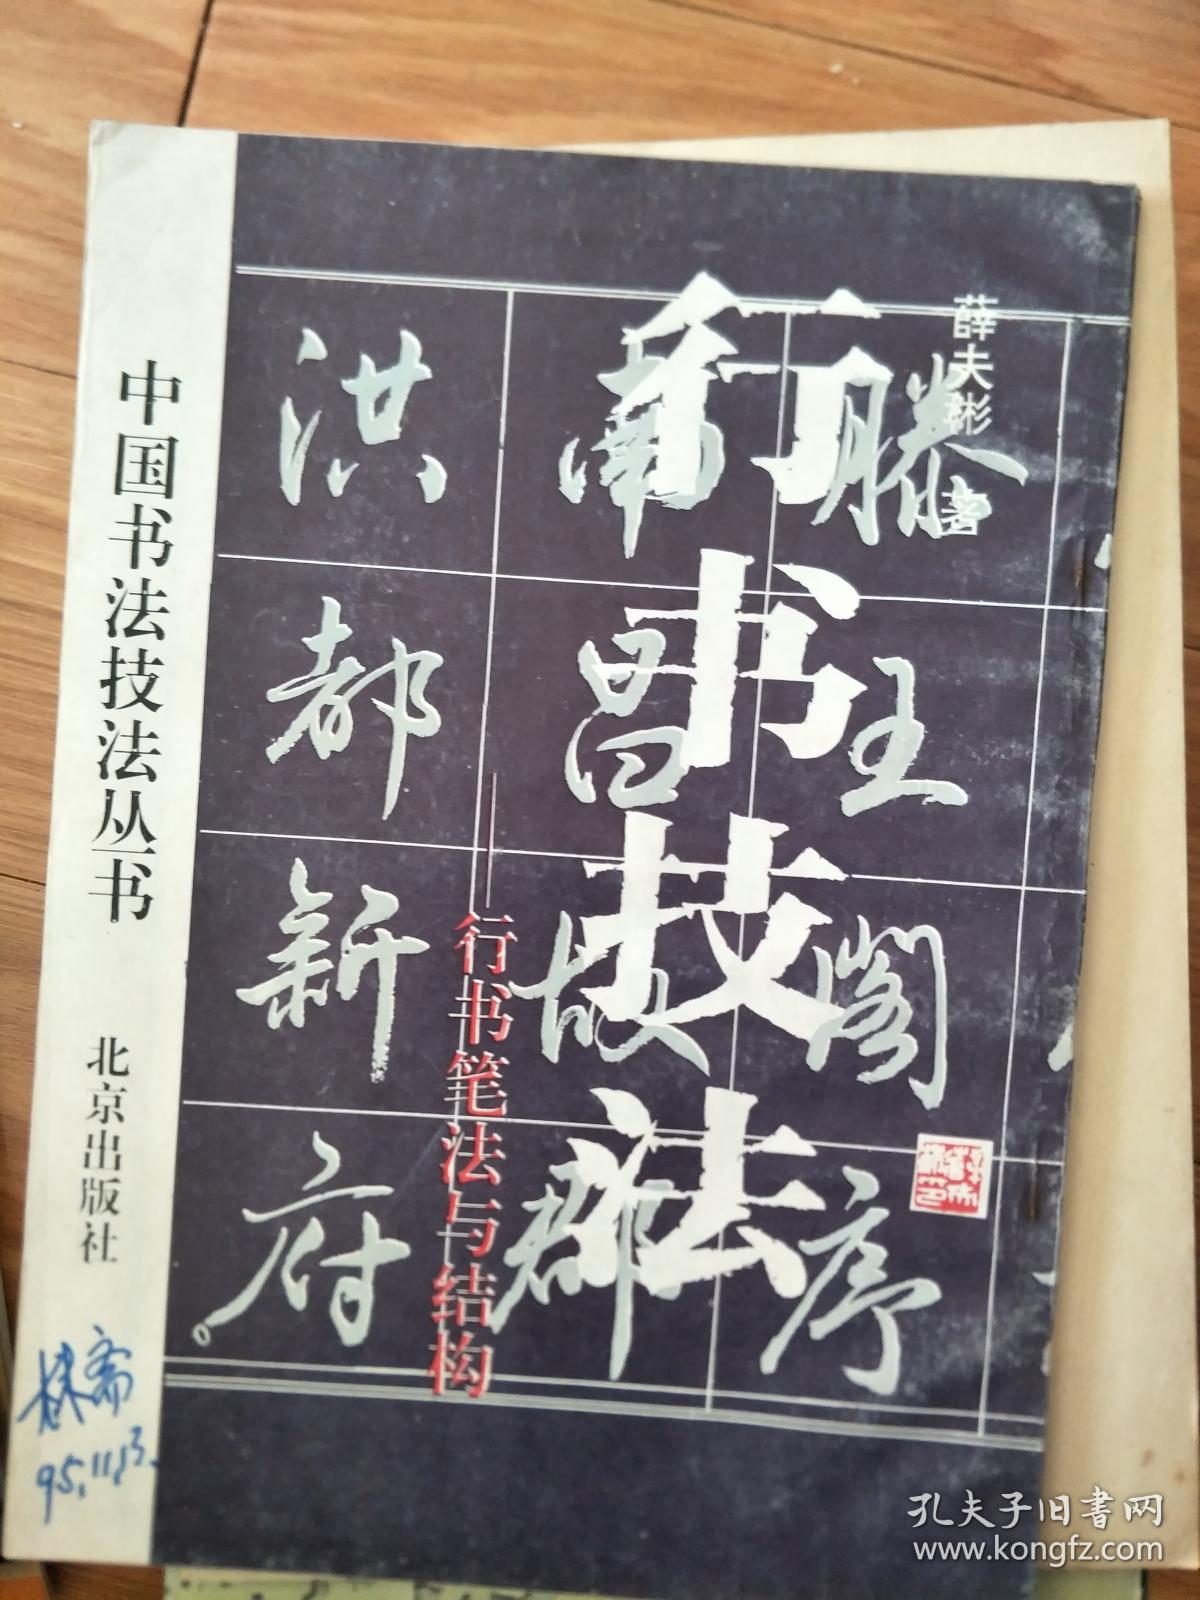 薛夫彬 著
行书技法
——行书笔法与结构
滕王阁序
南昌故郡
洪都新府。
中国书法技法丛书
北京出版社
斋
95.11.13.
孔夫子旧书网
www.kongfz.com